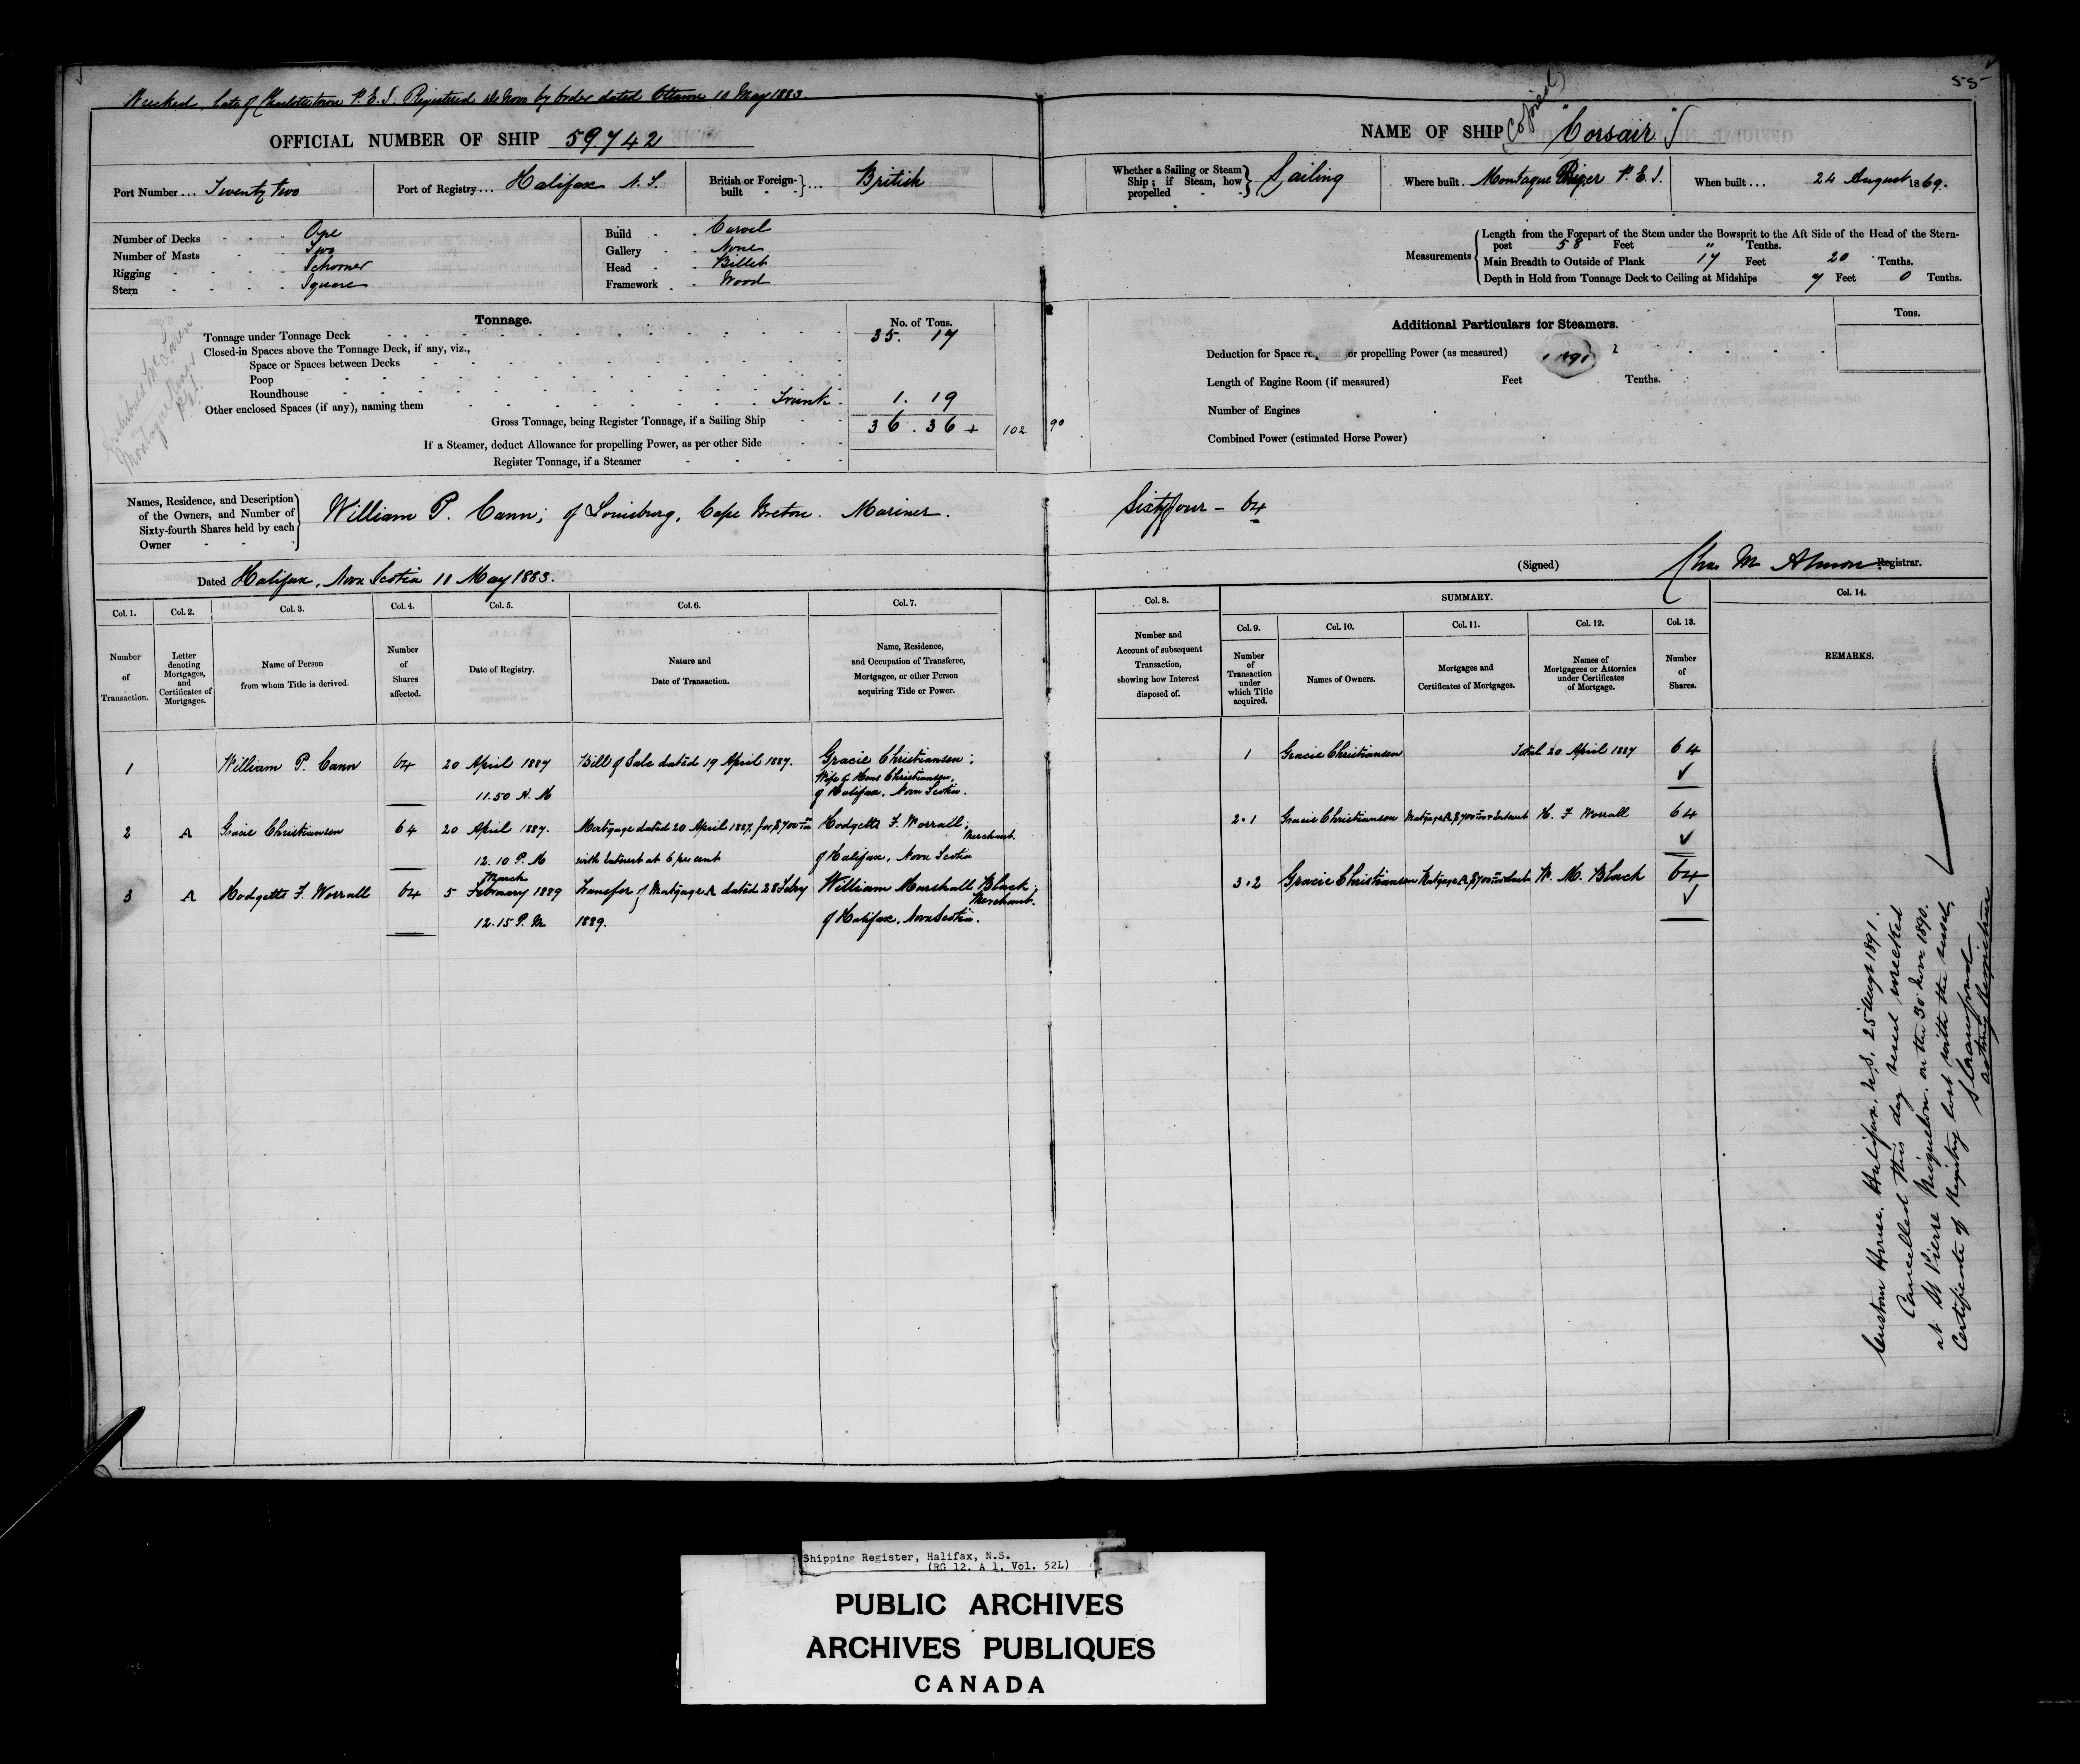 55
Wrecked, late of Charlottetown P.E.I. Registered de Novo by Order dated Ottawa 10 May 1883.
OFFICIAL NUMBER OF SHIP 59742
NAME OF SHIP "Corsair"
(Copied)
Port Number... Twenty two
Port of Registry... Halifax N.S.
British or Foreign-built - - } ... British
Whether a Sailing or Steam Ship; if Steam, how propelled - - } Sailing
Where built.. Montague River P.E.I.
When built... 24 August 1869.
Number of Decks - - - One
Number of Masts - - Two
Rigging - - - - Schooner
Stern - - - - Square
Build - - Carvel
Gallery - - None
Head - - Billet
Framework - - Wood
Measurements
Length from the Forepart of the Stem under the Bowsprit to the Aft Side of the Head of the Stern-
post 58 Feet " Tenths.
Main Breadth to Outside of Plank 17 Feet 20 Tenths.
Depth in Hold from Tonnage Deck to Ceiling at Midships 7 Feet 0 Tenths.
Tonnage.
No. of Tons.
Tonnage under Tonnage Deck 35. 17
Closed-in Spaces above the Tonnage Deck, if any, viz.,
Space or Spaces between Decks
Poop
Roundhouse
Other enclosed Spaces (if any), naming them Trunk 1. 19
Gross Tonnage, being Register Tonnage, if a Sailing Ship 36. 36 +
102 90
If a Steamer, deduct Allowance for propelling Power, as per other Side
Register Tonnage, if a Steamer
Archibald McLaren
Montague River
P.E.I.
Additional Particulars for Steamers.
Tons.
Deduction for Space or propelling Power (as measured)
Length of Engine Room (if measured) Feet Tenths.
Number of Engines
Combined Power (estimated Horse Power)
Names, Residence, and Description
of the Owners, and Number of
Sixty-fourth Shares held by each
Owner
William P. Cann; of Louisburg, Cape Breton. Mariner.
Sixty four - 64
Dated Halifax, Nova Scotia 11 May 1883.
(Signed) Chas M Almon Registrar.
Col. 1. Col. 2. Col. 3. Col. 4. Col. 5. Col. 6. Col. 7.
Col. 8. SUMMARY. Col. 14.
Col. 9. Col. 10. Col. 11. Col. 12. Col. 13.
Number of Transaction.
Letter denoting Mortgages, and Certificates of Mortgages.
Name of Person from whom Title is derived.
Number of Shares affected.
Date of Registry.
Nature and Date of Transaction.
Name, Residence, and Occupation of Transferee, Mortgagee, or other Person acquiring Title or Power.
Number and Account of subsequent Transaction, showing how Interest disposed of.
Number of Transaction under which Title acquired.
Names of Owners.
Mortgages and Certificates of Mortgages.
Names of Mortgagees or Attornies under Certificates of Mortgage.
Number of Shares.
REMARKS.
1 William P. Cann 64 20 April 1887 Bill of Sale dated 19 April 1887. Gracie Christiansen;
11.50 A.M Wife of Hans Christiansen,
of Halifax, Nova Scotia.
1 Gracie Christiansen Total 20 April 1887 64
2 A Gracie Christiansen 64 20 April 1887. Mortgage dated 20 April 1887, for $700 Hodgetts F. Worrall;
Merchant.
12.10 P.M with Interest at 6 per cent of Halifax, Nova Scotia
2.1 Gracie Christiansen Mortgage A, $700 Interest H. F Worrall 64
3 A Hodgetts F. Worrall 64 5 February March 1889 Transfer of Mortgage A dated 28 Feby William Marshall Black;
Merchant.
12.15 P.M 1889. of Halifax, Nova Scotia.
3.2 Gracie Christiansen Mortgage A, $700 W. M. Black 64
Custom House, Halifax, N.S. 25 Augt 1891.
Cancelled this day vessel wrecked
at St Pierre Miquelon, on the 30 Nov 1890.
Certificate of Registry lost with the vessel,
Acting Registrar
Shipping Register, Halifax, N.S.
(RG 12, A 1, Vol. 52L)
PUBLIC ARCHIVES
ARCHIVES PUBLIQUES
CANADA